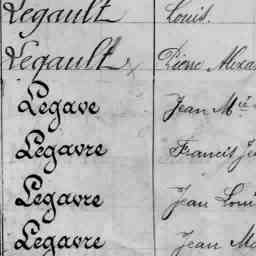 Legault Louis.
Legault Pierre Alexa
Legave Jean Mie
Legavre Francis Je
Legavre Jean Loui
Legavre Jean Ma